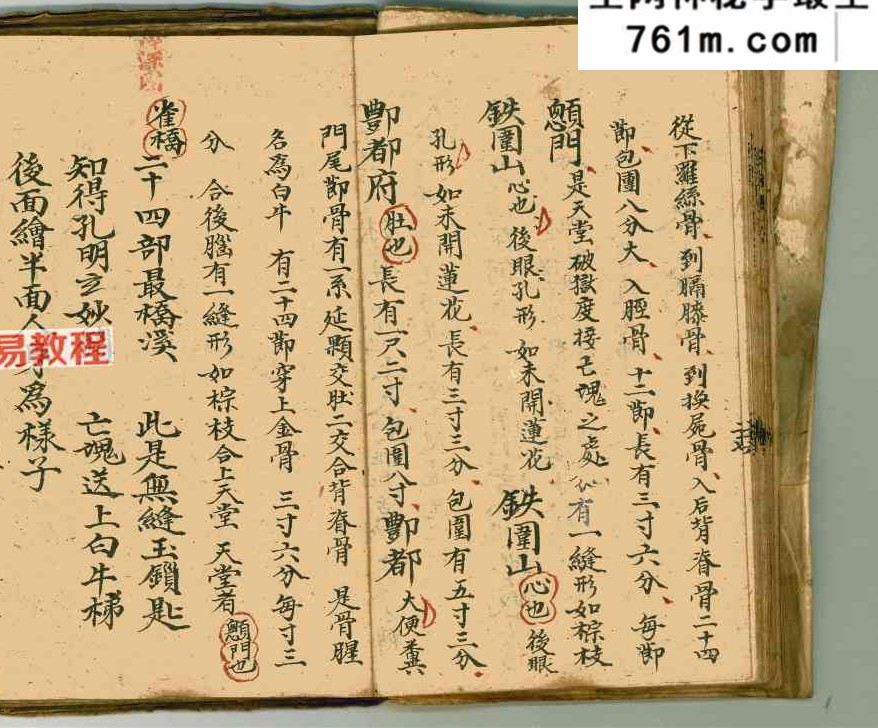 761m.com
從下羅絲骨到膈膝骨到換屍骨入后背脊骨二十四
節包團八分大入脛骨十二節長有三寸六分每節
門是天堂破獄度接亡魂之處有一縫形如棕枝
鉄圍山心也後眼孔形如未開蓮花鉄圍山心也後眼
孔形如未開蓮花長有三寸三分包圍有五寸三分
酆都府肚也長有一尺二寸包圍八寸酆都大便糞
門尾節骨有一系延顆交肚二交合背脊骨是骨腥
名為白牛有二十四節穿上金骨三寸六分每寸三
分合後腦有一縫形如棕枝合上天堂天堂者門也
雀橋二十四部最橋溪此是無縫玉鎖匙
知得孔明玄妙亡魂送上白牛梯
後面繪半面人為樣子
易教程